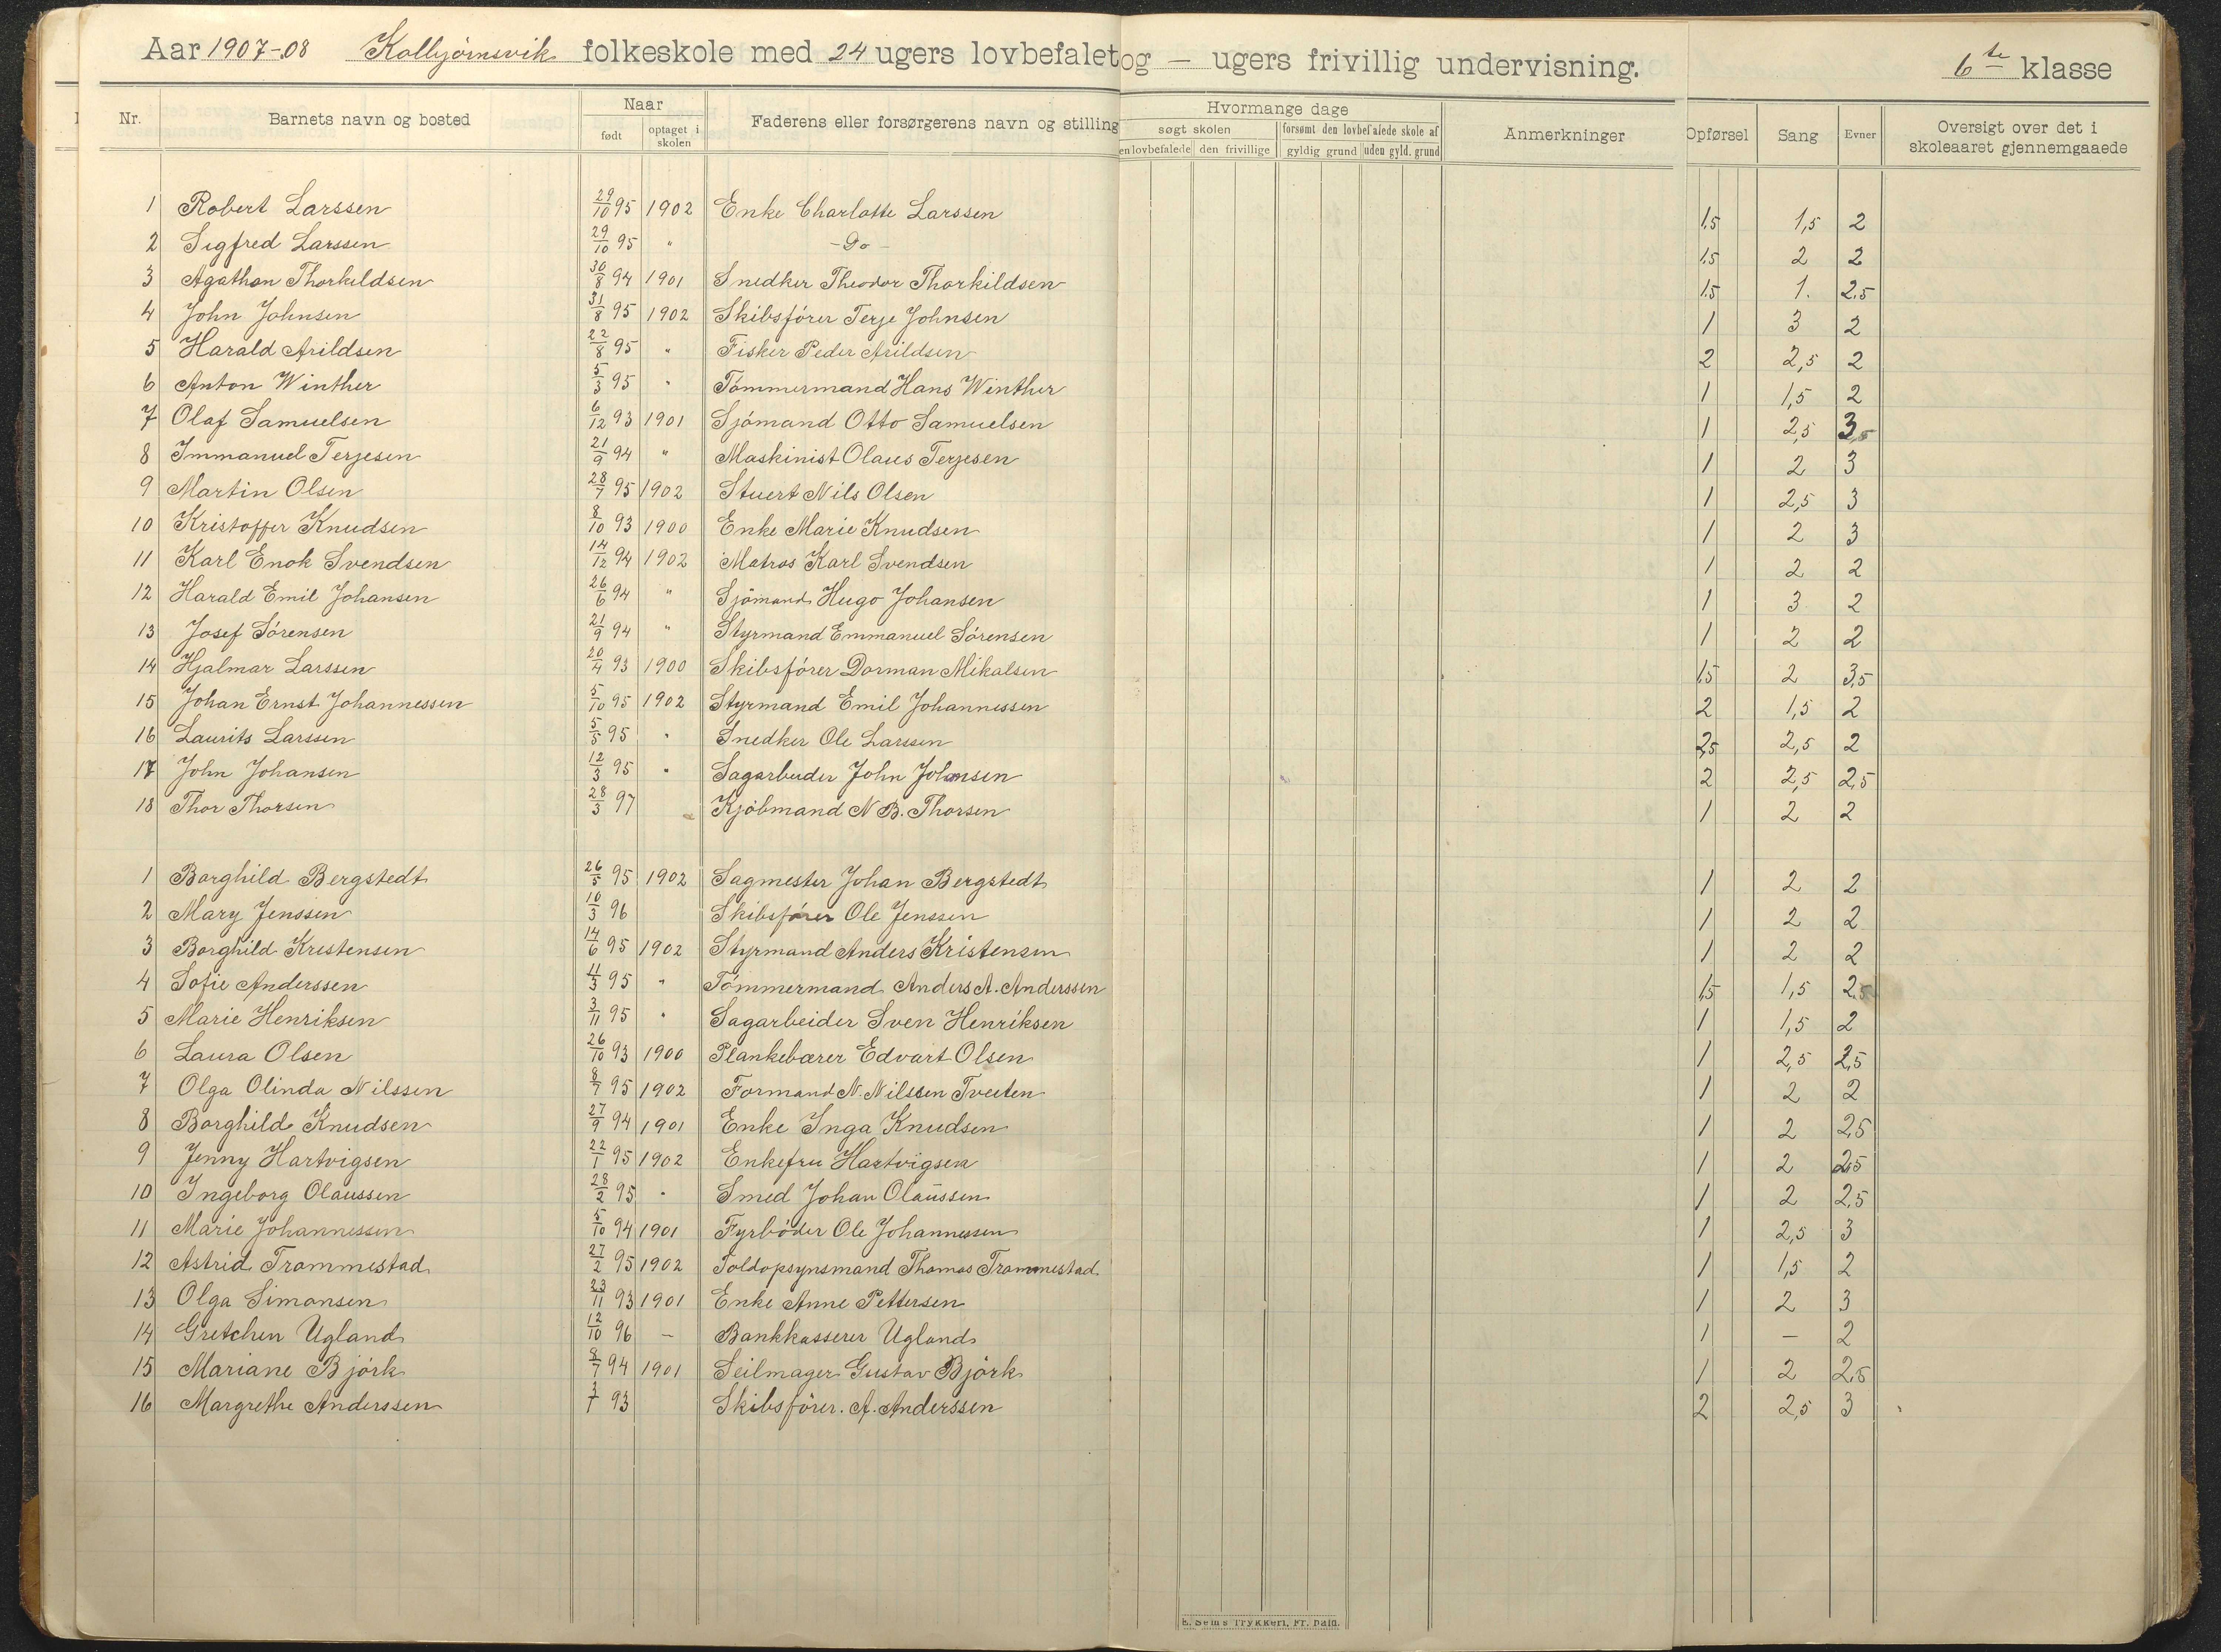 Aar 1907-08 Kolbjørnsvik folkeskole med 24 ugers lovbefalet og — ugers frivillig undervisning. 6te klasse
Nr. Barnets navn og bosted Naar født optaget i skolen Faderens eller forsørgerens navn og stilling Hvormange dage søgt skolen en lovbefalede den frivillige forsømt den lovbefalede skole af gyldig grund uden gyld. grund Anmerkninger Opførsel Sang Evner Oversigt over det i skoleaaret gjennemgaaede
1 Robert Larssen 29/10 95 1902 Enke Charlotte Larssen 1,5 1,5 2
2 Sigfred Larssen 29/10 95 " - Do - 1,5 2 2
3 Agathon Thorkildsen 30/8 94 1901 Snedker Theodor Thorkildsen 1,5 1. 2,5
4 John Johnsen 31/8 95 1902 Skibsfører Terje Johnsen 1 3 2
5 Harald Arildsen 22/8 95 " Fisker Peder Arildsen 2 2,5 2
6 Anton Winther 5/3 95 " Tømmermand Hans Winther 1 1,5 2
7 Olaf Samuelsen 6/12 93 1901 Sjømand Otto Samuelsen 1 2,5 3,5
8 Immanuel Terjesen 21/9 94 " Maskinist Olaus Terjesen 1 2 3
9 Martin Olsen 28/7 95 1902 Stuert Nils Olsen 1 2,5 3
10 Kristoffer Knudsen 8/10 93 1900 Enke Marie Knudsen 1 2 3
11 Karl Enok Svendsen 14/12 94 1902 Matros Karl Svendsen 1 2 2
12 Harald Emil Johansen 26/6 94 " Sjømand Hugo Johansen 1 3 2
13 Josef Sørensen 21/9 94 " Styrmand Emmanuel Sørensen 1 2 2
14 Hjalmar Larssen 20/4 93 1900 Skibsfører Dorman Mikalsen 1,5 2 3,5
15 Johan Ernst Johannessen 5/10 95 1902 Styrmand Emil Johannessen 2 1,5 2
16 Laurits Larssen 5/5 95 " Snedker Ole Larssen 2,5 2,5 2
17 John Johansen 12/3 95 " Sagarbuder John Johansen 2 2,5 2,5
18 Thor Thorsen 28/3 97 Kjøbmand N B. Thorsen 1 2 2
1 Borghild Bergstedt 26/5 95 1902 Sagmester Johan Bergstedt 1 2 2
2 Mary Jenssen 10/3 96 Skibsfører Ole Jenssen 1 2 2
3 Borghild Kristensen 14/6 95 1902 Styrmand Anders Kristensen 1 2 2
4 Sofie Anderssen 11/3 95 " Tømmermand Anders A. Anderssen 1,5 1,5 2,5
5 Marie Henriksen 3/11 95 " Sagarbeider Sven Henriksen 1 1,5 2
6 Laura Olsen 26/10 93 1900 Plankebærer Edvart Olsen 1 2,5 2,5
7 Olga Olinda Nilssen 8/7 95 1902 Formand N. Nilssen Tveiten 1 2 2
8 Borghild Knudsen 27/9 94 1901 Enke Inga Knudsen 1 2 2,5
9 Jenny Hartvigsen 22/1 95 1902 Enkefru Hartvigsen 1 2 2,5
10 Ingeborg Olaussen 28/2 95 " Smed Johan Olaussen 1 2 2,5
11 Marie Johannessen 5/10 94 1901 Fyrbøder Ole Johannessen 1 2,5 3
12 Astrid Trommestad 27/2 95 1902 Toldopsynsmand Thomas Trommestad 1 1,5 2
13 Olga Simonsen 23/11 93 1901 Enke Anne Pettersen 1 2 3
14 Gretchen Ugland 12/10 96 — Bankkasserer Ugland 1 — 2
15 Mariane Bjørk 8/7 94 1901 Seilmager Gustav Bjørk 1 2 2,5
16 Margrethe Anderssen 3/7 93 Skibsfører. A. Anderssen 2 2,5 3
E. Sem's Trykkeri, Fr. hald.